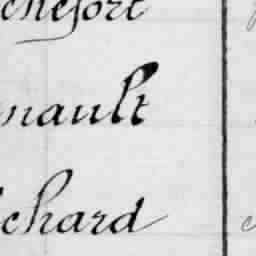 chefort
nault
chard